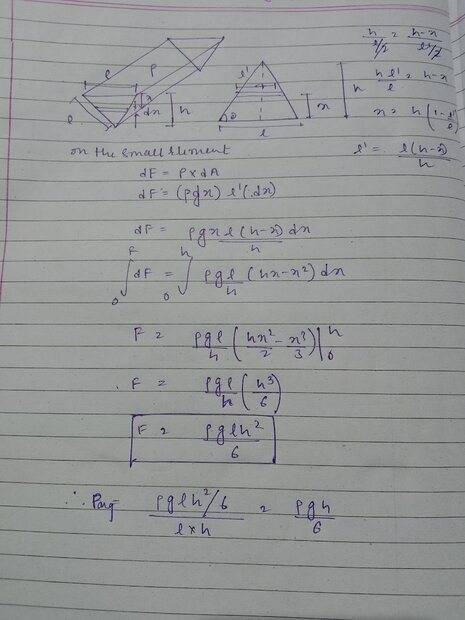 h/(l/2) = (h-x)/(l'/2)
hl'/l = h-x
x = h(1-l'/l)
l' = l(h-x)/h
l ρ l' h
l x dx h θ l x
on the small element
dF = P x dA
dF = (ρgx) l'(.dx)
dF = ρgx l(h-x)/h dx
∫₀^F dF = ∫₀^h ρgl/h (hx-x²) dx
F = ρgl/h (hx²/2 - x³/3)|₀^h
F = ρgl/h (h³/6)
F = ρglh²/6
∴ Pavg (ρglh²/6)/(l×h) = ρgh/6